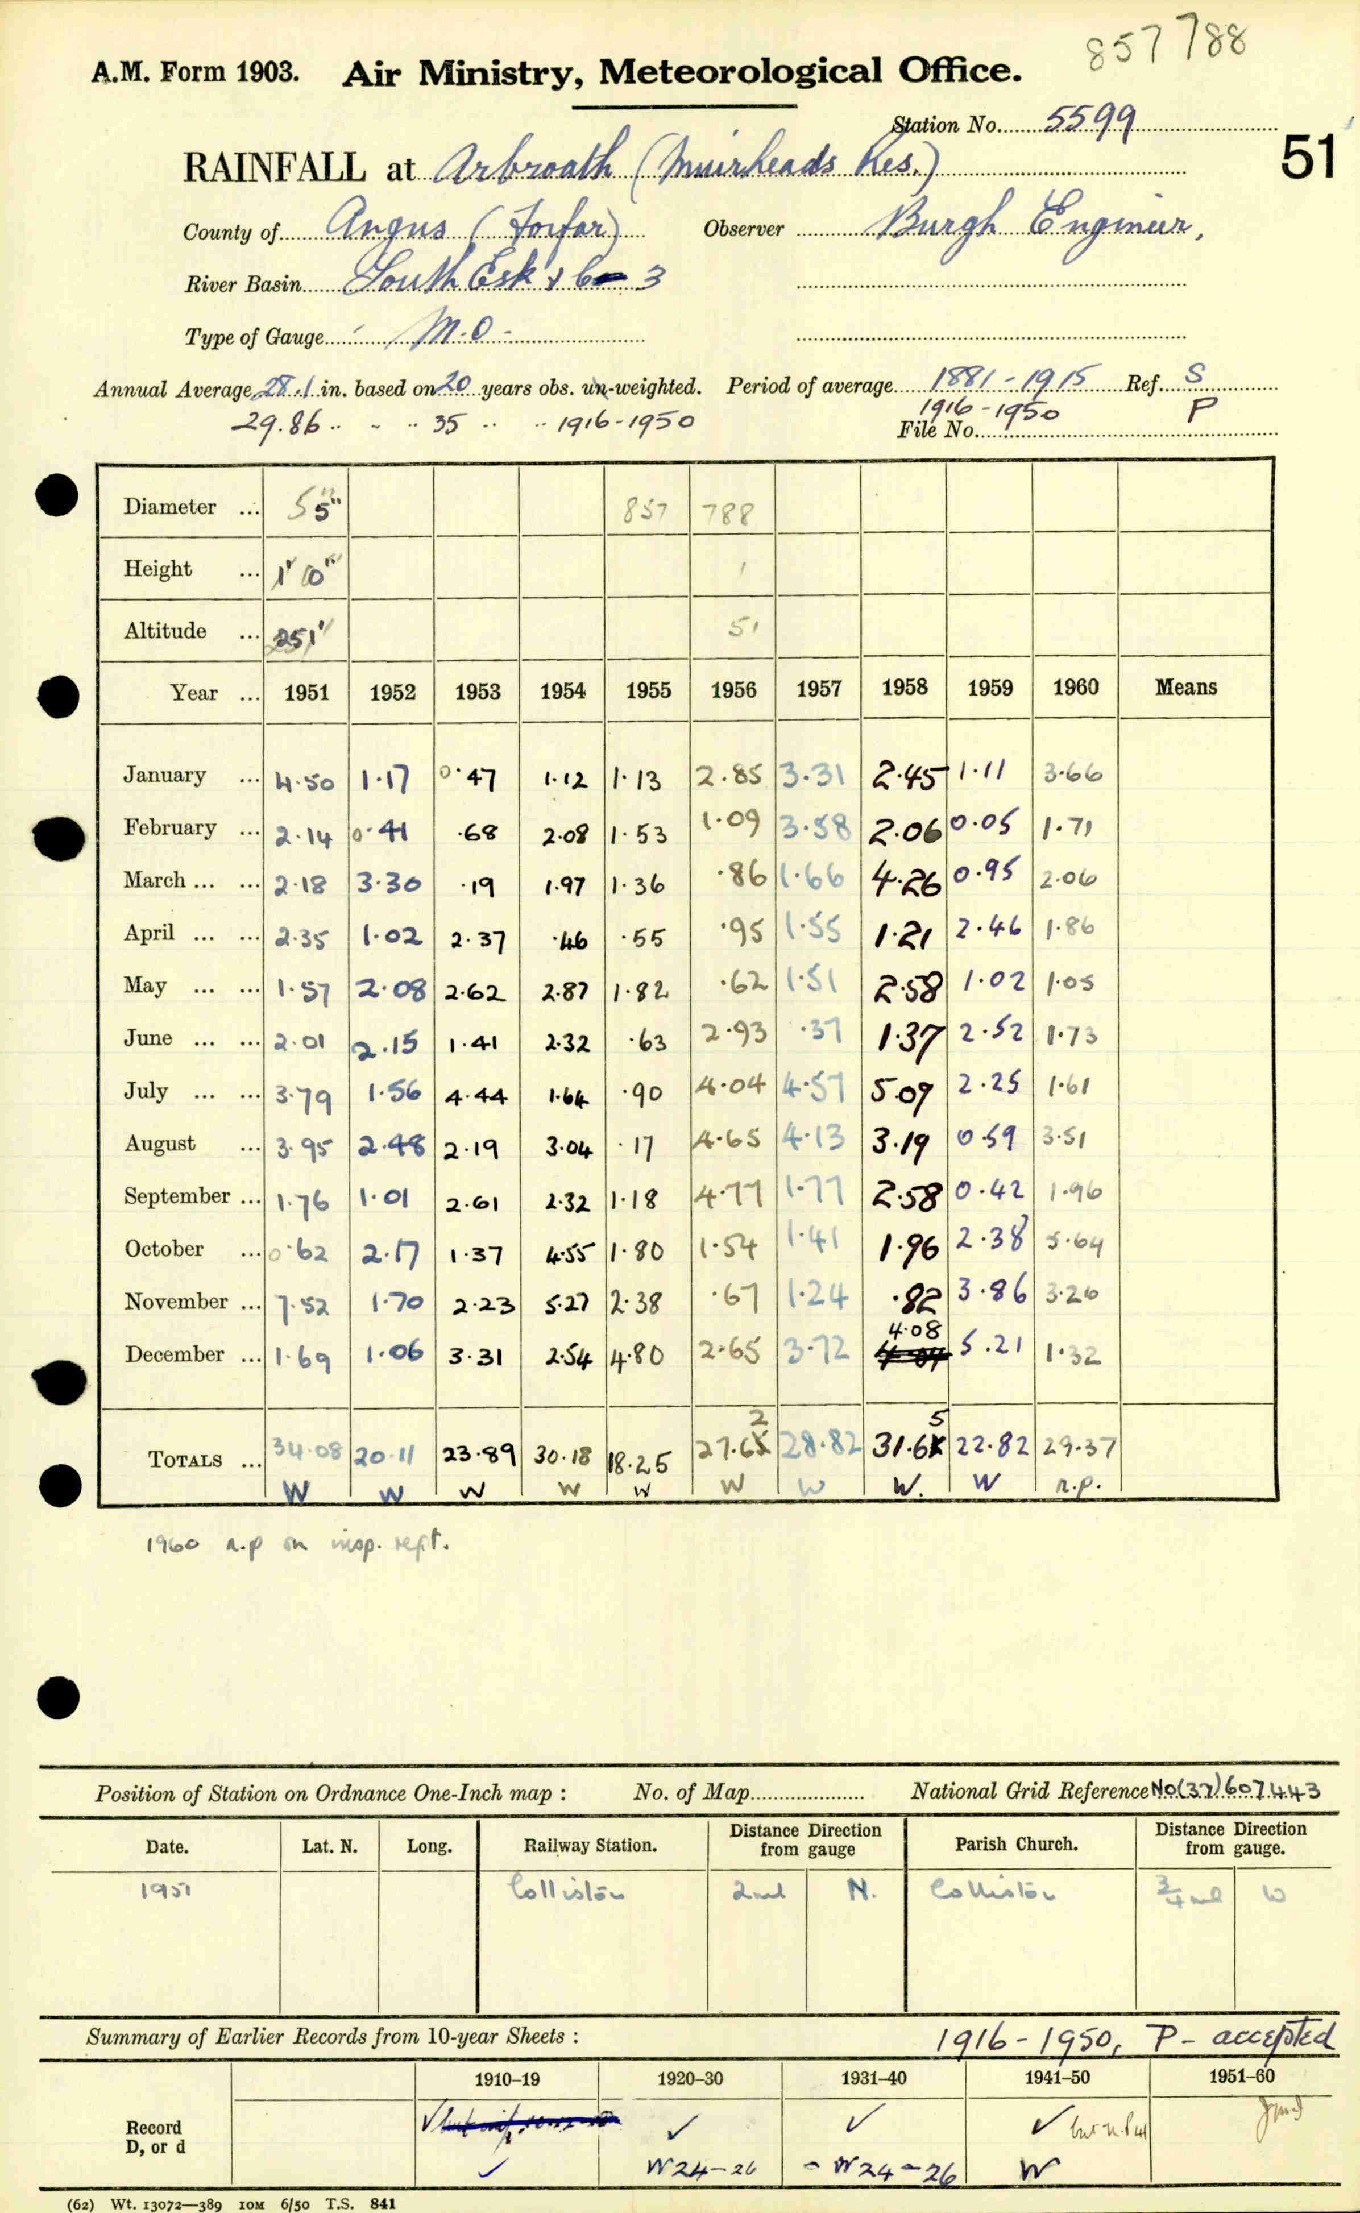 857 788
A.M. Form 1903. Air Ministry, Meteorological Office.
Station No. 5599
51
RAINFALL at Arbroath (Muirheads Res.)
County of Angus (Forfar) Observer Burgh Engineer,
River Basin South Esk & 6 3
Type of Gauge M.O.
Annual Average 28.1 in. based on 20 years obs. un-weighted. Period of average 1881-1915 Ref. S
29.86 .. .. .. 35 .. .. 1916-1950 1916-1950 P
File No.
Diameter ... 5" 5" 857 788
Height ... 1' 0"
Altitude ... 251' 51
Year ... 1951 1952 1953 1954 1955 1956 1957 1958 1959 1960 Means
January ... 4.50 1.17 0.47 1.12 1.13 2.85 3.31 2.45 1.11 3.66
February ... 2.14 0.41 .68 2.08 1.53 1.09 3.58 2.06 0.05 1.71
March ... ... 2.18 3.30 .19 1.97 1.36 .86 1.66 4.26 0.95 2.06
April ... ... 2.35 1.02 2.37 .46 .55 .95 1.55 1.21 2.46 1.86
May ... ... 1.57 2.08 2.62 2.87 1.82 .62 1.51 2.58 1.02 1.05
June ... ... 2.01 2.15 1.41 2.32 .63 2.93 .37 1.37 2.52 1.73
July ... ... 3.79 1.56 4.44 1.64 .90 4.04 4.57 5.09 2.25 1.61
August ... 3.95 2.48 2.19 3.04 .17 4.65 4.13 3.19 0.59 3.51
September ... 1.76 1.01 2.61 2.32 1.18 4.77 1.77 2.58 0.42 1.96
October ... 0.62 2.17 1.37 4.55 1.80 1.54 1.41 1.96 2.38 5.64
November ... 7.52 1.70 2.23 5.27 2.38 .67 1.24 .82 3.86 3.26
4.08
December ... 1.69 1.06 3.31 2.54 4.80 2.65 3.72 4.04 5.21 1.32
2 5
TOTALS ... 34.08 20.11 23.89 30.18 18.25 27.6 28.82 31.6 22.82 29.37
W W W W W W W W. W n.p.
1960 n.p on insp. rept.
Position of Station on Ordnance One-Inch map : No. of Map National Grid Reference NO(37)607443
Date. Lat. N. Long. Railway Station. Distance from Direction gauge Parish Church. Distance from Direction gauge.
1951 Colliston 2ml N. Colliston 3/4 ml W
Summary of Earlier Records from 10-year Sheets : 1916-1950, P- accepted
1910–19 1920–30 1931–40 1941–50 1951–60
Record
D, or d
✓ ✓ ✓ ✓
W24-26 - W24-26 W
(62) Wt. 13072—389 10M 6/50 T.S. 841